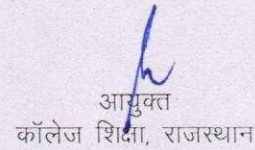 आयुक्त
कॉलेज शिक्षा, राजस्थान